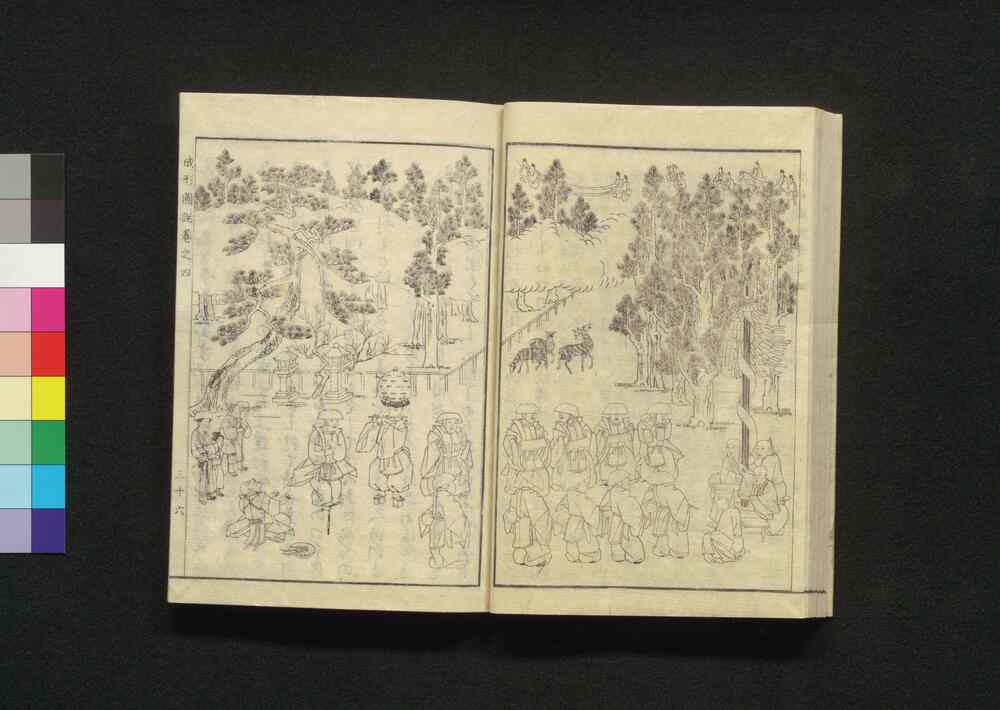 成形圖説卷之四
三十六